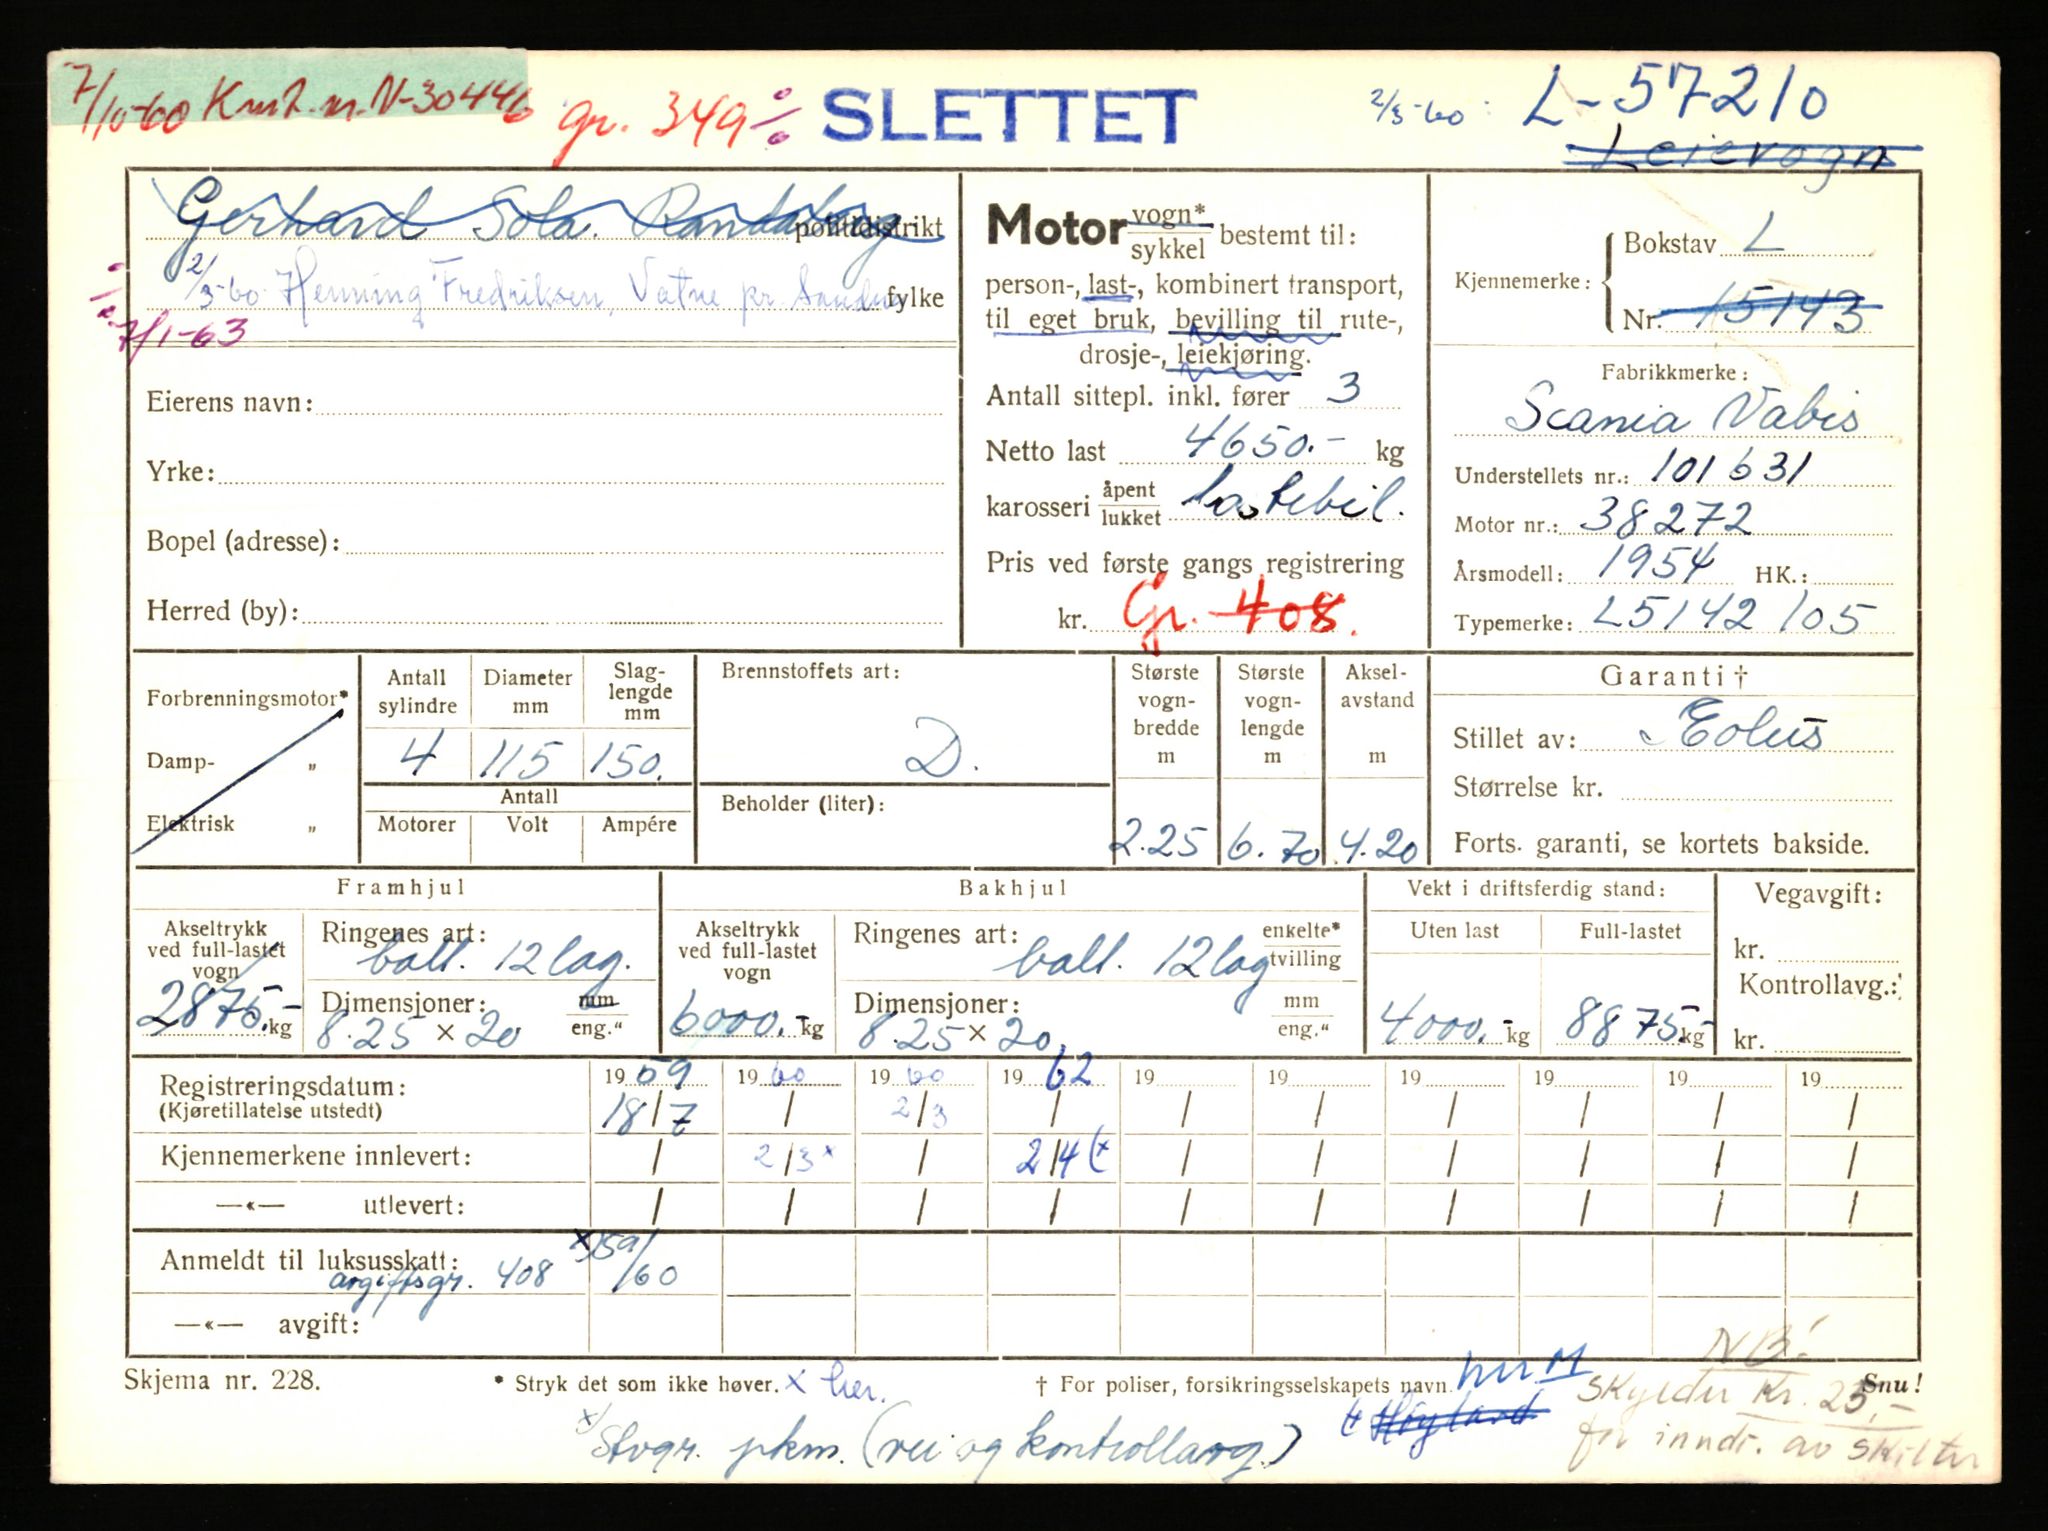 7/10-60 Kmt. nr. N-30446 gr. 349 % SLETTET 2/3-60: L-57210
Leievogn
Gerhard Sola. Randaberg politidistrikt
2/3-60 Henning Fredriksen, Vatne pr. Sandnes fylke
7/1-63
Eierens navn:
Yrke:
Bopel (adresse):
Herred (by):
Motor vogn* / sykkel bestemt til:
person-, last-, kombinert transport,
til eget bruk, bevilling til rute-,
drosje-, leiekjøring.
Antall sittepl. inkl. fører 3
Netto last 4650.- kg
karosseri åpent / lukket lastebil.
Pris ved første gangs registrering
kr. Gr. 408.
Kjennemerke: Bokstav L
Nr. 15143
Fabrikkmerke:
Scania Vabis
Understellets nr.: 101631
Motor nr.: 38272
Årsmodell: 1954 HK.:
Typemerke: L5142105
Forbrenningsmotor*
Damp- „
Elektrisk „
Antall sylindre Diameter mm Slag-lengde mm
4 115 150.
Antall
Motorer Volt Ampére
Brennstoffets art:
D.
Beholder (liter):
Største vogn-bredde m Største vogn-lengde m Aksel-avstand m
2.25 6.70 4.20
Garanti †
Stillet av: Eolus
Størrelse kr.
Forts. garanti, se kortets bakside.
Framhjul Bakhjul Vekt i driftsferdig stand: Vegavgift:
Akseltrykk ved full-lastet vogn 2875.- kg
Ringenes art: ball. 12 lag.
Dimensjoner: mm / eng."
8.25 x 20
Akseltrykk ved full-lastet vogn 6000.- kg
Ringenes art: ball. 12 lag enkelte* / tvilling
Dimensjoner: mm / eng."
8.25 x 20.
Uten last Full-lastet
4000.- kg 8875.- kg
kr.
Kontrollavg.:
kr.
Registreringsdatum: 19 59 19 60 19 60 19 62 19 19 19 19 19 19
(Kjøretillatelse utstedt) 18/7 / 2/3 / / / / / / /
Kjennemerkene innlevert: / 2/3 x / 2/4 (x / / / / / /
—«— utlevert: / / / / / / / / / /
Anmeldt til luksusskatt: x) 59/60
avgiftsgr. 408
—«— avgift:
NB!
Skjema nr. 228. * Stryk det som ikke høver. x her. † For poliser, forsikringsselskapets navn. Snu!
skylder kr. 25,-
x/ Stvgr. pkm. (vei og kontrollavg.) Høyland
for inndr. av skilter